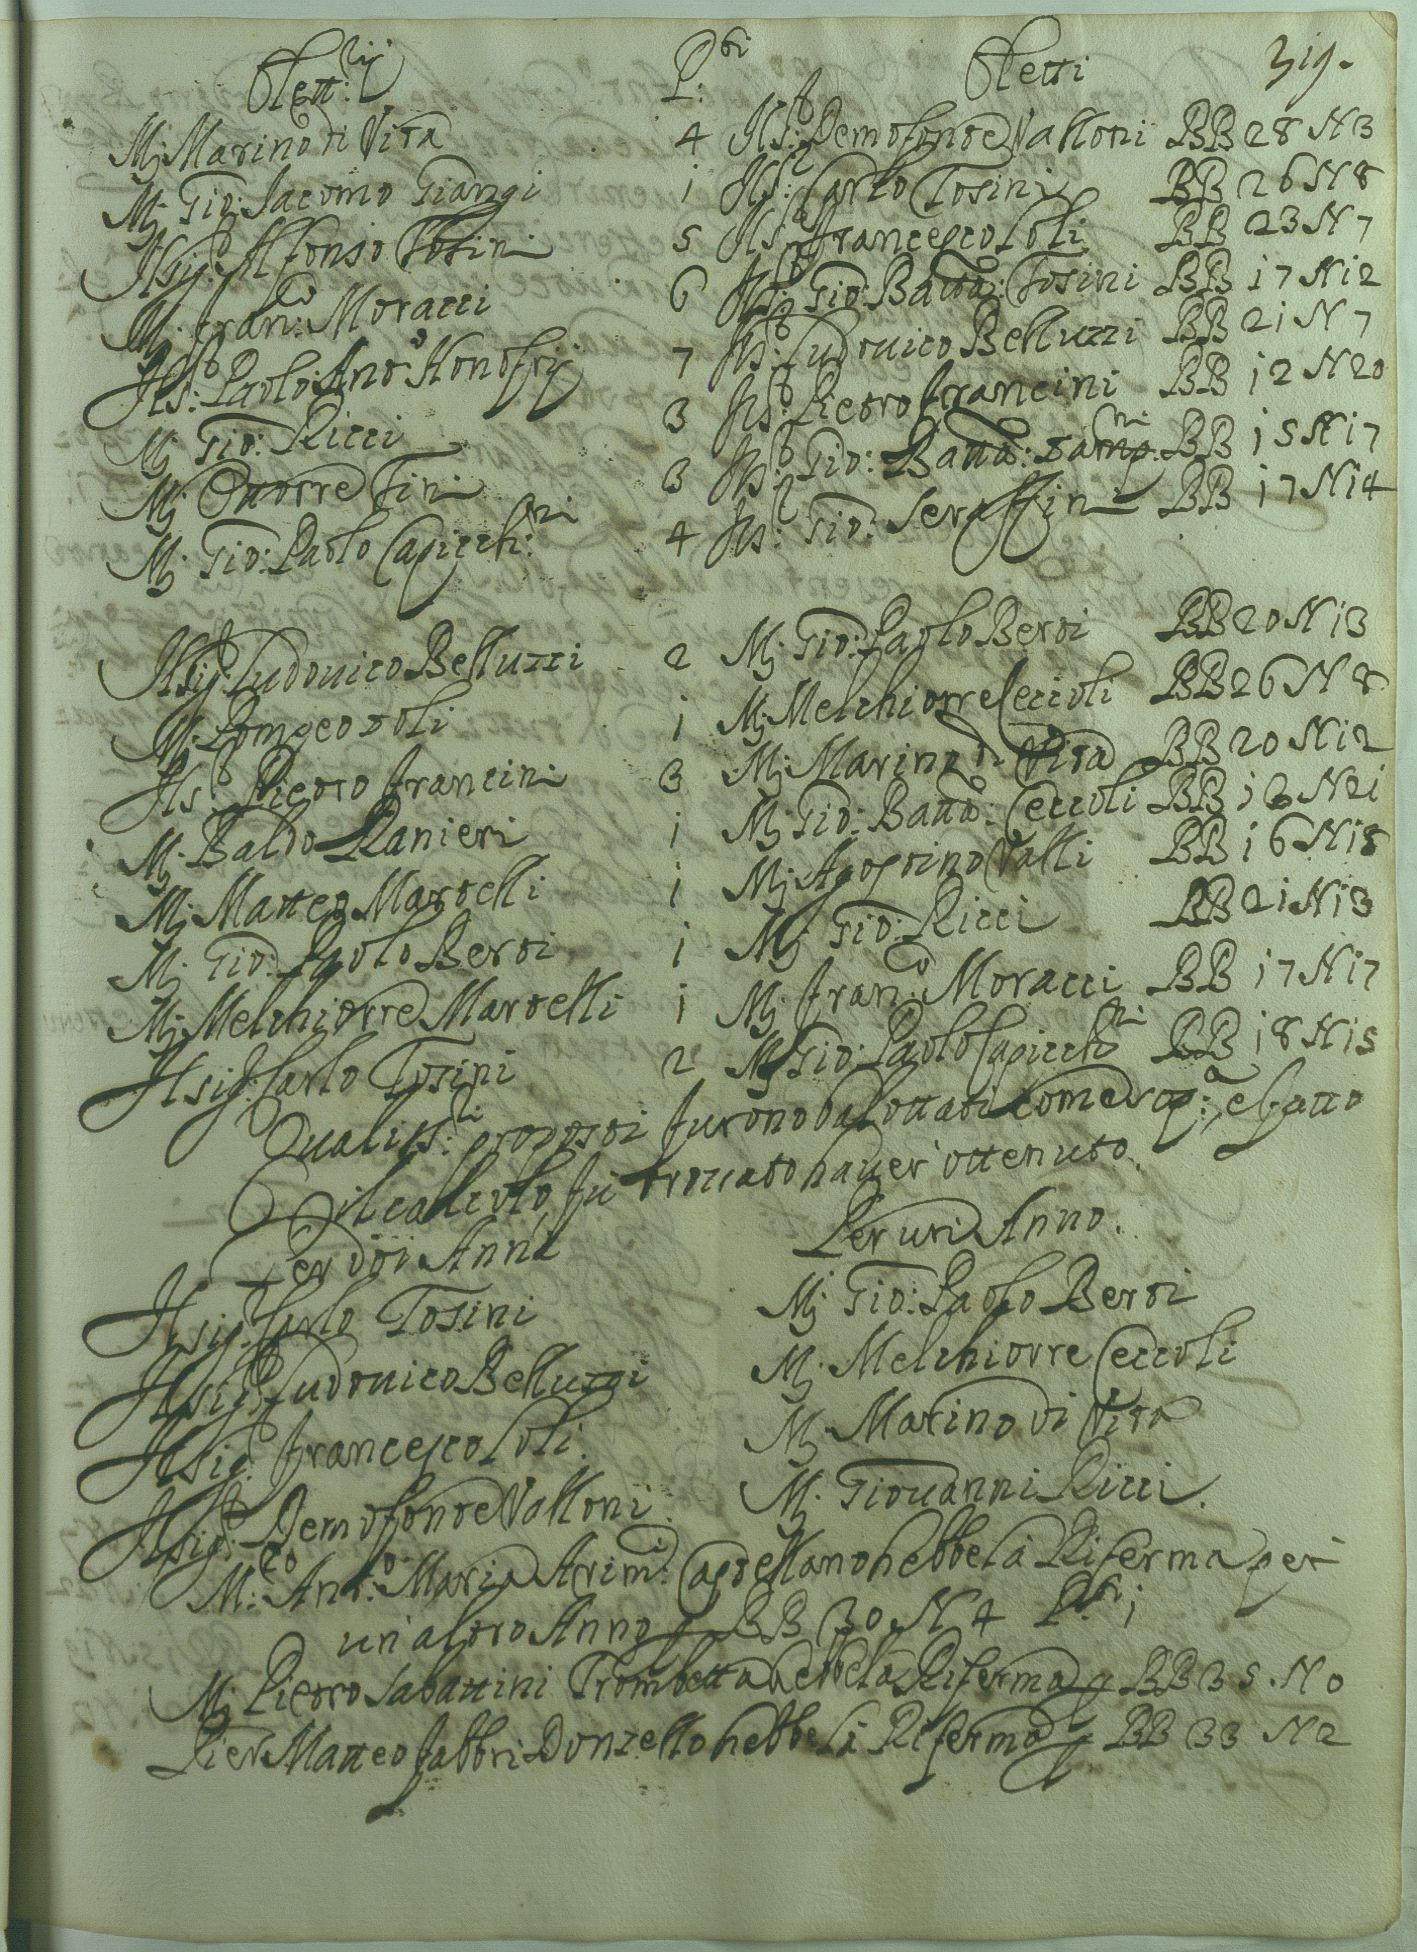 Elett:rij P:ti Eletti 319.
M. Marino di Vita 4 Il S:r Demofonte Valloni BB 28 N 3
M. Gio: Iacomo Giangi 1 Il S:r Carlo Tosini BB 26 N 8
Il sig:r Alfonso Tosini 5 Il S:r Francesco Loli BB 23 N 7
M. Fran:co Moracci 6 Il S:r Gio: Batta: Tosini BB 17 N 12
Il S:r Paolo Ant:o Honofrij 7 Il S:r Ludovico Belluzzi BB 21 N 7
M. Gio: Ricci 3 Il S:r Pietro Francini BB 12 N 20
M. Ettorre Fini 3 Il S:r Gio: Batta: Samp:ni BB 15 N 17
M. Gio: Paolo Capicch:ni 4 Il S:r Gio: Seraffini BB 17 N 14
Il sig:r Ludovico Belluzzi 2 M. Gio: Paolo Berti BB 20 N 13
M. Pompeo Loli 1 M. Melchiorre Ceccoli BB 26 N 8
Il S:r Pietro Francini 3 M. Marino di Vita BB 20 N 12
M. Baldo Ranieri 1 M. Gio: Batta: Ceccoli BB 13 N 21
M. Matteo Martelli 1 M. Agostino Valli BB 16 N 18
M. Gio: Paolo Berti 1 M. Gio: Ricci BB 21 N 13
M. Melchiorre Martelli 1 M. Fran:co Moracci BB 17 N 17
Il sig:r Carlo Tosini 2 M. Gio: Paolo Capicch:ni BB 18 N 15
Quali ss:ri proposti furono balottati come sop:a, e fatto
il calcolo, fù trovato haver' ottenuto.
Per doi Anni Per un' Anno.
Il sig:r Carlo Tosini M. Gio: Paolo Berti
Il sig:r Ludovico Belluzzi M. Melchiorre Ceccoli
Il sig:r Francesco Loli. M. Marino di Vita
Il sig:r Demofonte Valloni. M. Giovanni Ricci.
M:ro Ant:o Maria Arim:i Capellano hebbe la Riferma per
un' altro Anno p BB 30 N 4 P:ti 1
M. Pietro Sabattini Trombetta hebbe la Riferma p BB 35. N 0
Pier Matteo Fabbri Donzello hebbe la Riferma p BB 33 N 2